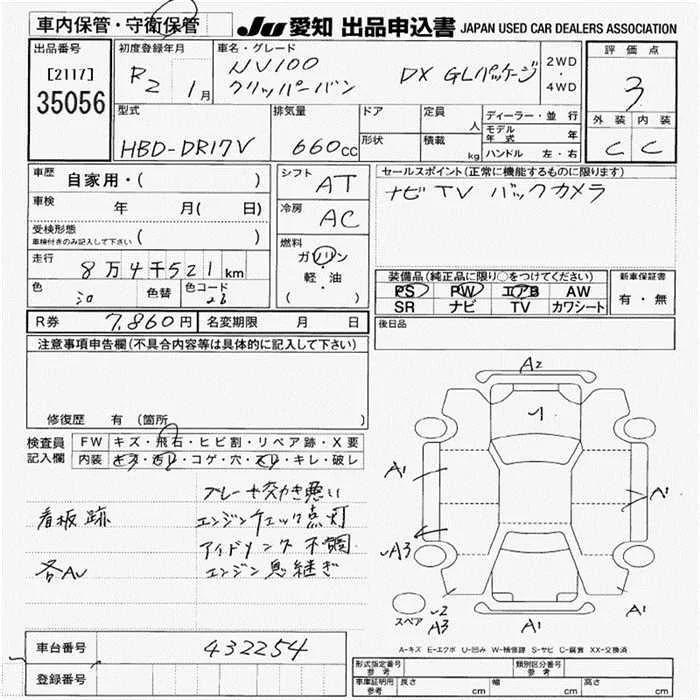 車内保管・守衛保管
JU 愛知 出品申込書 JAPAN USED CAR DEALERS ASSOCIATION
出品番号
[2117]
35056
初度登録年月
R2 1月
車名・グレード
NV100
クリッパーバン
DX GLパッケージ
2WD
・
4WD
評価点
3
外装 内装
C C
型式
HBD-DR17V
排気量
660cc
ドア
形状
定員
人
積載
kg
ディーラー・並行
モデル年式 年
ハンドル 左・右
車歴 自家用・( )
車検 年 月( 日)
受検形態
車検付きのみ記入して下さい ( )
走行
8万4千521km
色 色替 色コード
シフト AT
冷房 AC
燃料
ガソリン
軽・油
( )
セールスポイント(正常に機能するものに限ります)
ナビ TV バックカメラ
装備品(純正品に限り○をつけてください)
PS PW エアB AW
SR ナビ TV カワシート
新車保証書
有・無
R券 7,860円 名変期限 月 日
後日品
注意事項申告欄(不具合内容等は具体的に記入して下さい)
修復歴 有 (箇所
検査員記入欄
FW キズ・飛石・ヒビ割・リペア跡・X要
内装 キズ・汚レ・コゲ・穴・スレ・キレ・破レ
ブレーキ効き悪い
看板跡 エンジンチェック点灯
アイドリング不調
各AU エンジン息継ぎ
A2
A1
A1
A3
スペア
2
A3
A1
A1
A-キズ E-エクボ U-凹み W-補修跡 S-サビ C-腐食 XX-交換済
車台番号 432254
登録番号
形式指定番号 参考
類別区分番号 参考
車庫証明用 参考 長さ cm 幅 cm 高さ cm